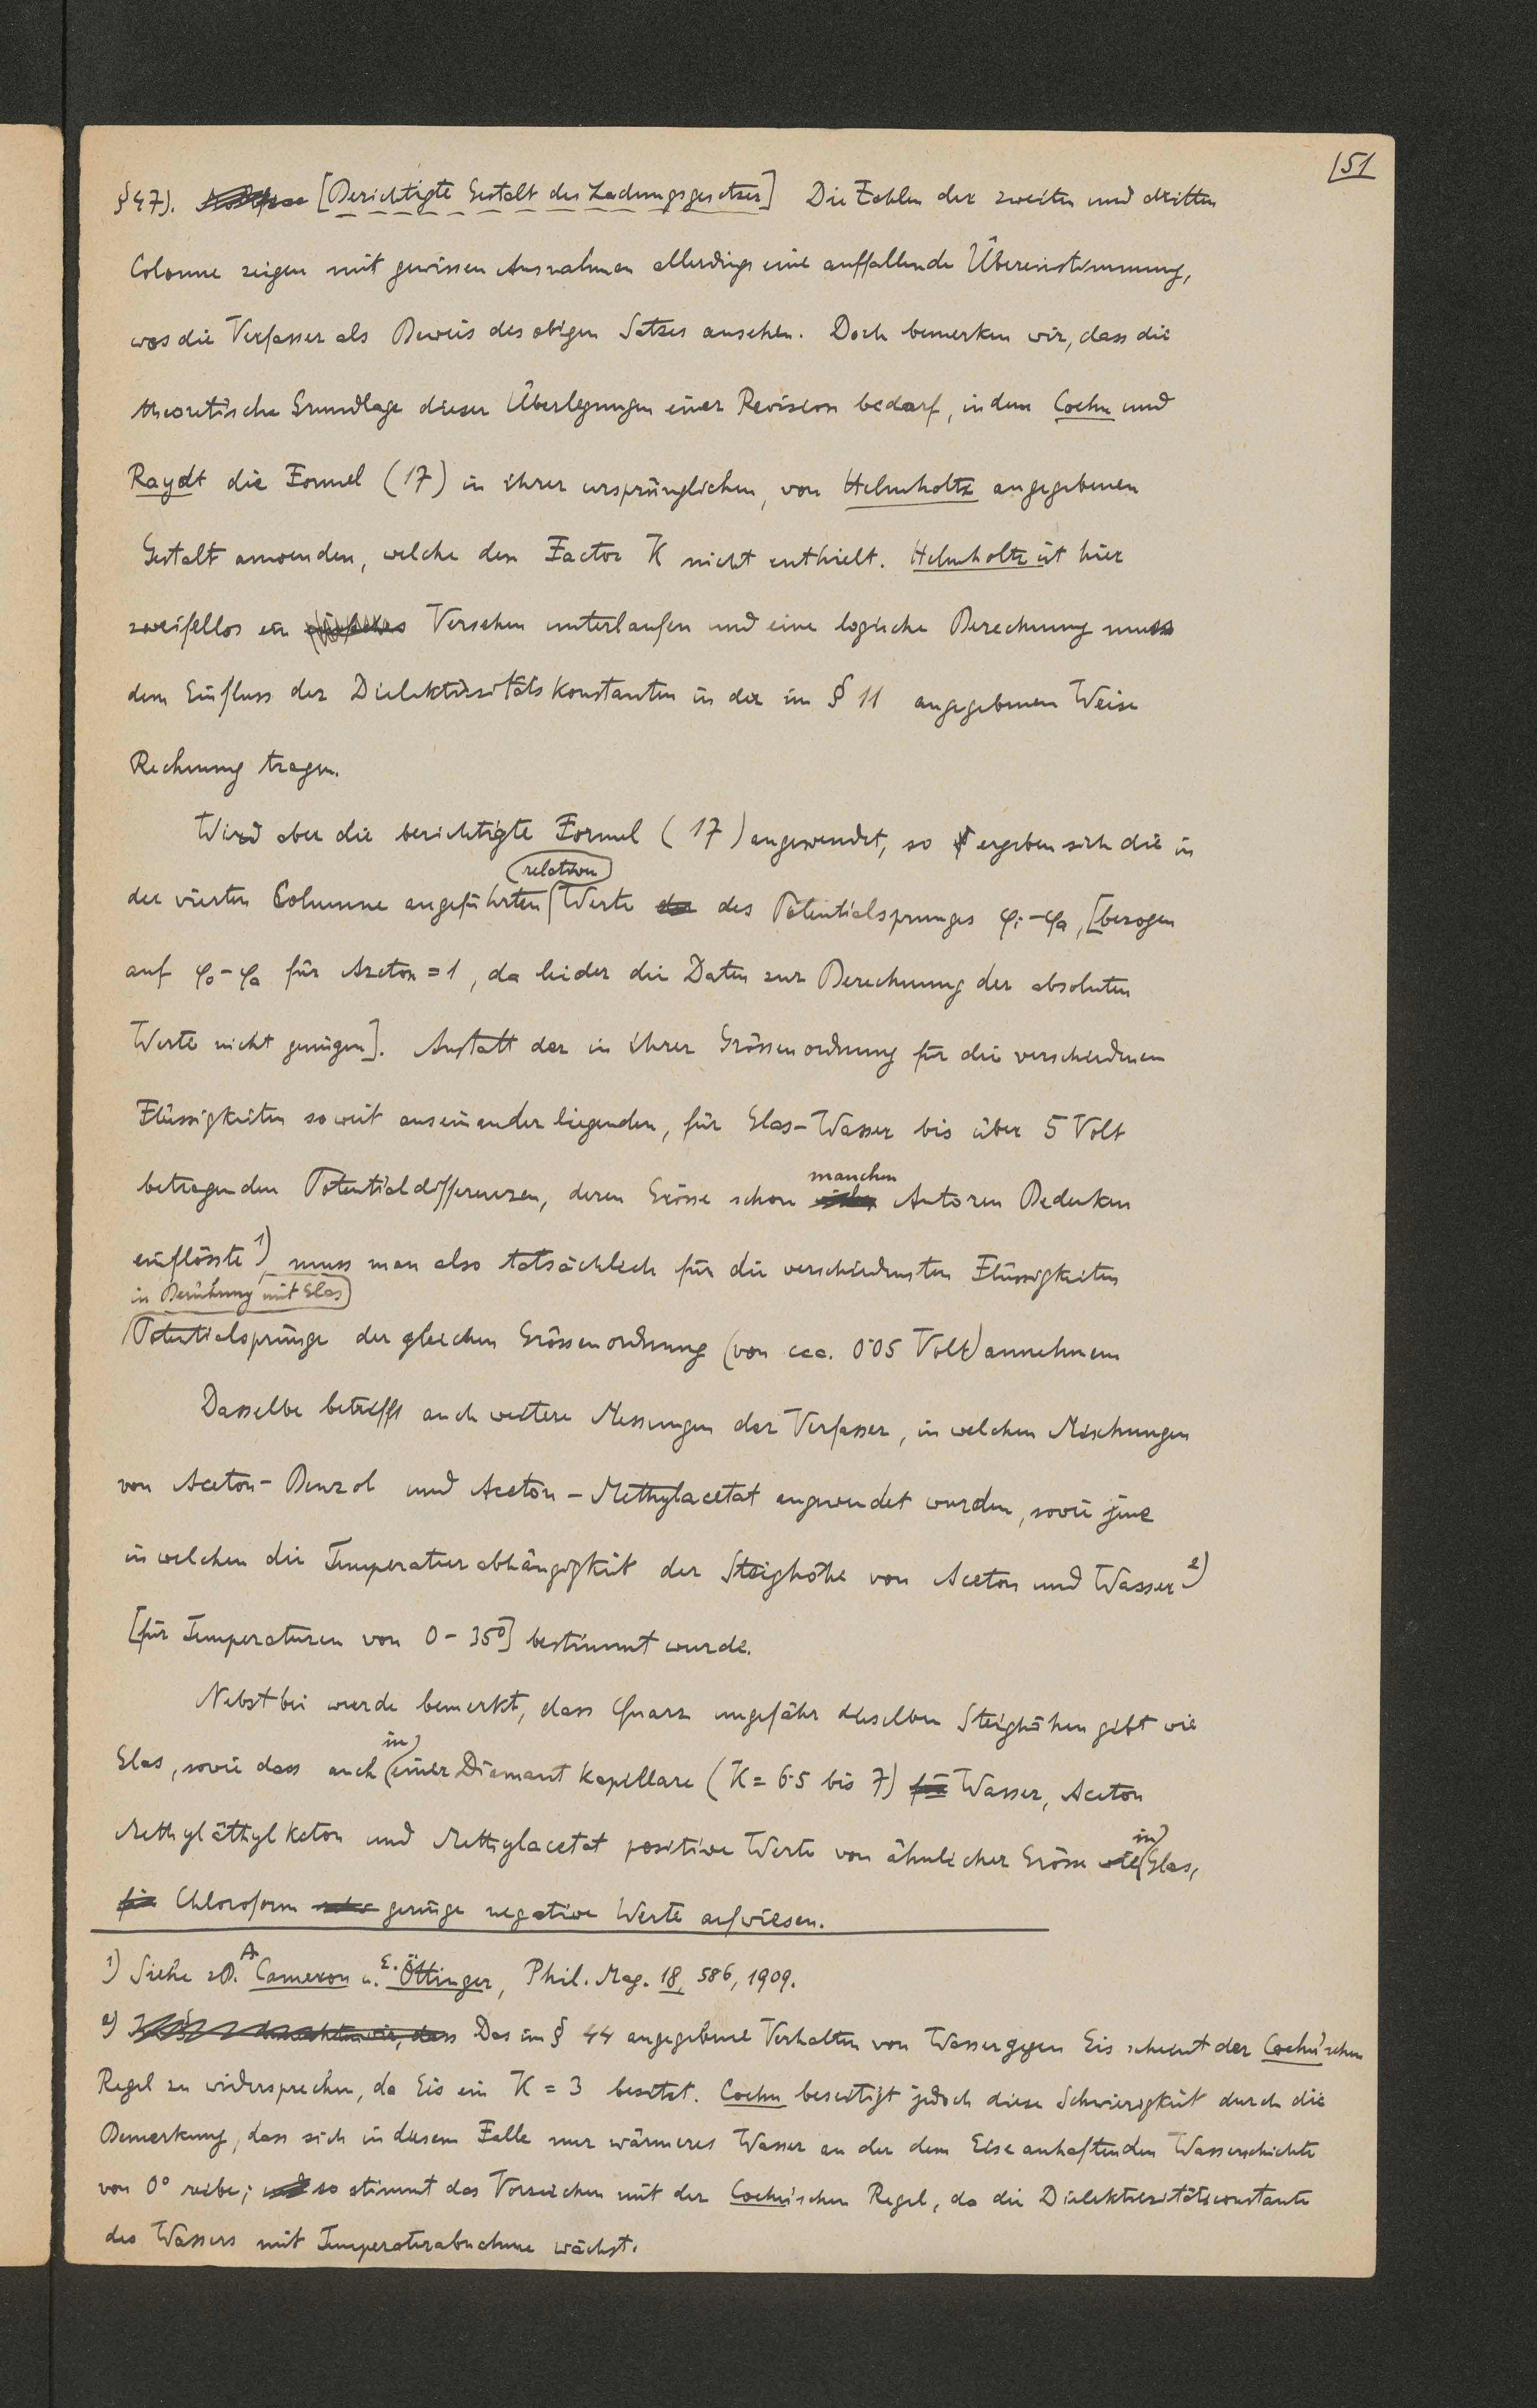 151
§ 47). [Berichtigte Gestalt des Ladungsgesetzes] Die Zahlen der zweiten und dritten
Colonne zeigen mit gewissen Ausnahmen allerdings eine auffallende Übereinstimmung,
was die Verfasser als Beweis des obigen Satzes ansehen. Doch bemerken wir, dass die
theoretische Grundlage dieser Überlegungen einer Revision bedarf, indem Coehn und
Raydt die Formel (17) in ihrer ursprünglichen, von Helmholtz angegebenen
Gestalt anwenden, welche den Factor K nicht enthielt. Helmholtz ist hier
zweifellos ein Versehen unterlaufen und eine logische Berechnung muss
dem Einfluss der Dielektrizitätskonstanten in der im § 11 angegebenen Weise
Rechnung tragen.
Wird aber die berichtigte Formel (17) angewendet, so ergeben sich die in
relativen
der vierten Columne angeführten Werte des Potentialsprunges φi-φa, [bezogen
auf φo-φa für Azeton = 1, da leider die Daten zur Berechnung der absoluten
Werte nicht genügen]. Anstatt der in ihrer Grössenordnung für die verschiedenen
Flüssigkeiten soweit auseinander liegenden, für Glas-Wasser bis über 5 Volt
manchen
betragenden Potentialdifferenzen, deren Grösse schon Autoren Bedenken
einflösste 1), muss man also tatsächlich für die verschiedensten Flüssigkeiten
in Berührung mit Glas
Potentialsprünge der gleichen Grössenordnung (von cca. 0·05 Volt) annehmen
Dasselbe betrifft auch weitere Messungen der Verfasser, in welchen Mischungen
von Aceton-Benzol und Aceton-Methylacetat angewendet wurden, sowie jene
in welchen die Temperaturabhängigkeit der Steighöhe von Aceton und Wasser 2)
[für Temperaturen von 0-35°] bestimmt wurde.
Nebstbei wurde bemerkt, dass Quarz ungefähr dieselben Steighöhen gibt wie
in
Glas, sowie dass auch einer Diamantkapillare (K = 6·5 bis 7) Wasser, Aceton
Methyläthylketon und Methylacetat positive Werte von ähnlicher Grösse wie in Glas,
Chloroform geringe negative Werte aufwiesen.
1) Siehe zB. A Cameron u. E. Öttinger, Phil. Mag. 18, 586, 1909.
2) Das im § 44 angegebene Verhalten von Wasser gegen Eis scheint der Coehn'schen
Regel zu widersprechen, da Eis ein K = 3 besitzt. Coehn beseitigt jedoch diese Schwierigkeit durch die
Bemerkung, dass sich in diesem Falle nur wärmeres Wasser an der dem Eise anhaftenden Wasserschichte
von 0° reibe; so stimmt das Vorzeichen mit der Coehnschen Regel, da die Dielektrizitätsconstante
des Wassers mit Temperaturabnahme wächst.